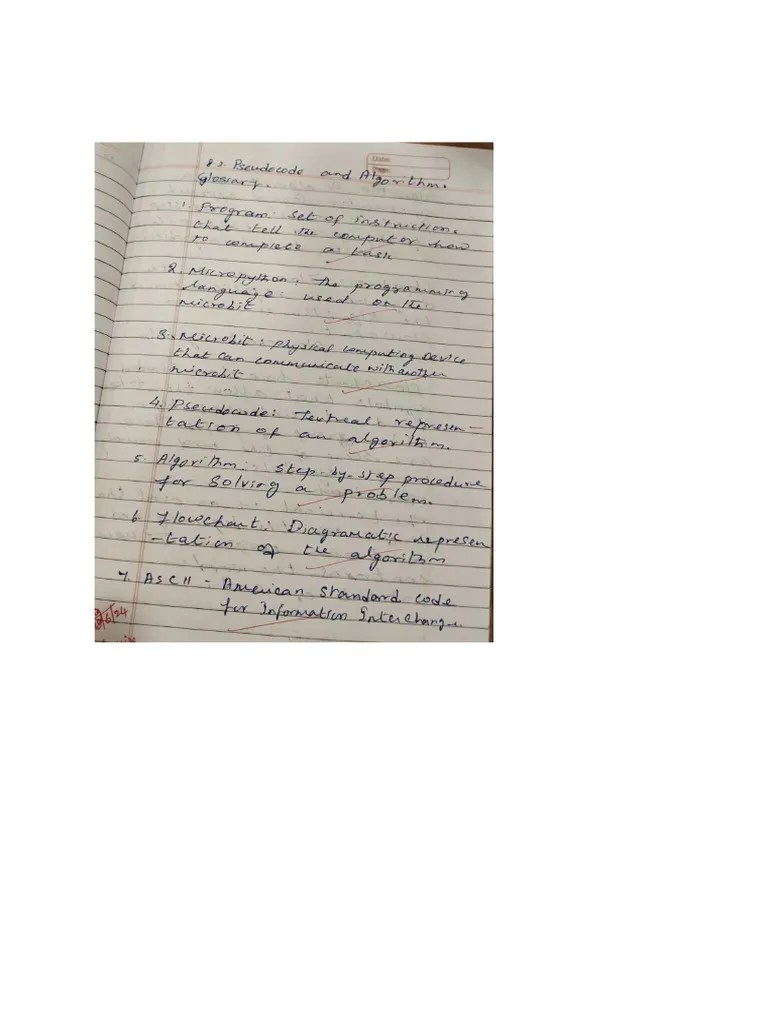 Date:
8.2. Pseudocode and Algorithm.
Glossary.
1. Program: set of instructions
that tell the computer how
to complete a task
2. Micropython: The programming
language used on the
microbit
3. Microbit: physical computing Device
that can communicate with another
microbit
4. Pseudocode: Textual represen-
tation of an algorithm.
5. Algorithm: step-by-step procedure
for solving a problem.
6. Flowchart: Diagramatic represen
-tation of the algorithm
7. ASCII - American standard code
for Information Interchange.
/6/24